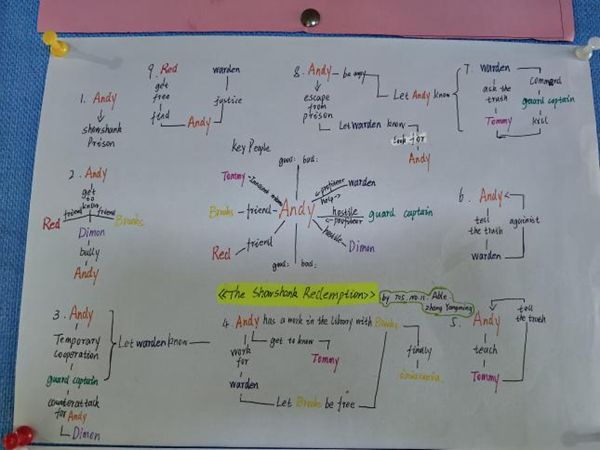 9. Red
get
free
find
Andy
warden
justice
8. Andy
be angry
escape
from
prison
Let Andy know
Let warden know
look for
Andy
7. warden
ask the
truth
Tommy
command
guard captain
kill
1. Andy
Shawshank
Prison
Key People
good: bad:
Tommy
Brooks
friend
Red
friend
Andy
warden
help
hostile
guard captain
hostile
Dimon
good: bad:
2. Andy
get
to
know
Red friend friend Brooks
Dimon
bully
Andy
6. Andy
tell
the truth
warden
againist
<<The Shawshank Redemption>>
by 705. NO.11. Able
Zhang Yangming
3. Andy
Temporary
cooperation
guard captain
counterattack
for Andy
Dimon
Let warden know
4. Andy has a work in the library with Brooks
get to know
Tommy
work
for
warden
Let Brooks be free
finally
5. Andy
tell
the truth
teach
Tommy